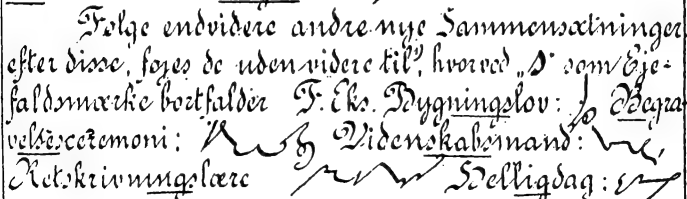 Følge endvidere andre nye Sammensætninger
efter disse, føjes de uden videre til, hvorved „s" som Eje-
faldsmærke bortfalder F. Eks. Bygningslov: Begra-
velsesceremoni: Videnskabsmand:
Retskrivningslære Helligdag: